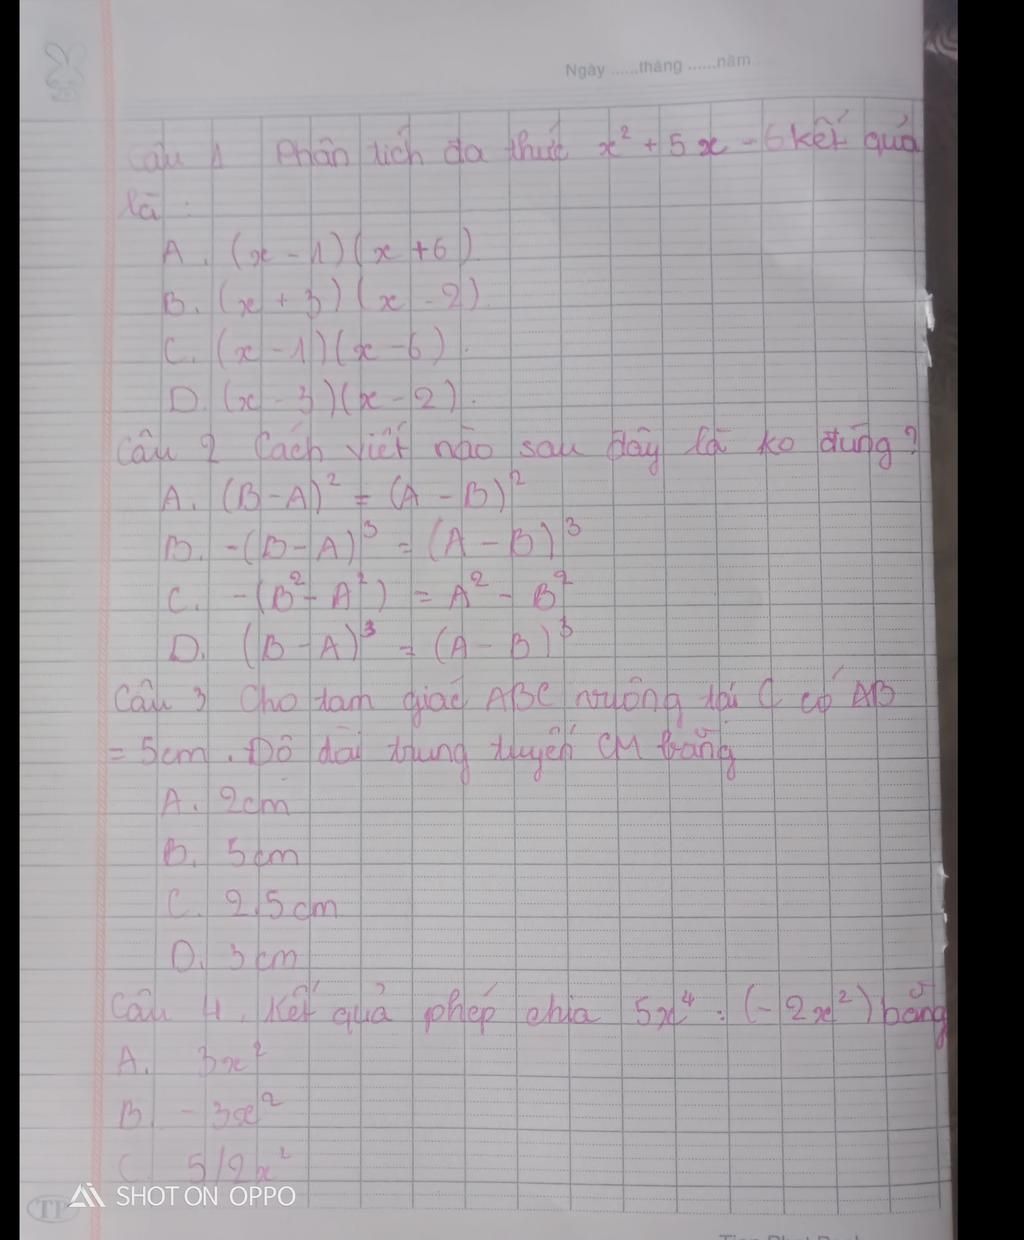 Ngày ......tháng ......năm
Câu 1 Phân tích đa thức x² + 5x - 6 kết quả
là :
A. (x - 1)(x + 6)
B. (x + 3)(x - 2)
C. (x - 1)(x - 6).
D. (x - 3)(x - 2).
Câu 2 Cách viết nào sau đây là ko đúng?
A. (B - A)² = (A - B)²
B. -(B - A)³ = (A - B)³
C. -(B² - A²) = A² - B²
D. (B - A)³ = (A - B)³
Câu 3 Cho tam giác ABC vuông tại C có AB
= 5cm. Độ dài trung tuyến CM bằng
A. 2cm
B. 5cm
C. 2,5cm
D. 3cm
Câu 4. Kết quả phép chia 5x⁴ : (-2x²) bằng
A. 3x²
B -3x²
C 5/2x²
SHOT ON OPPO